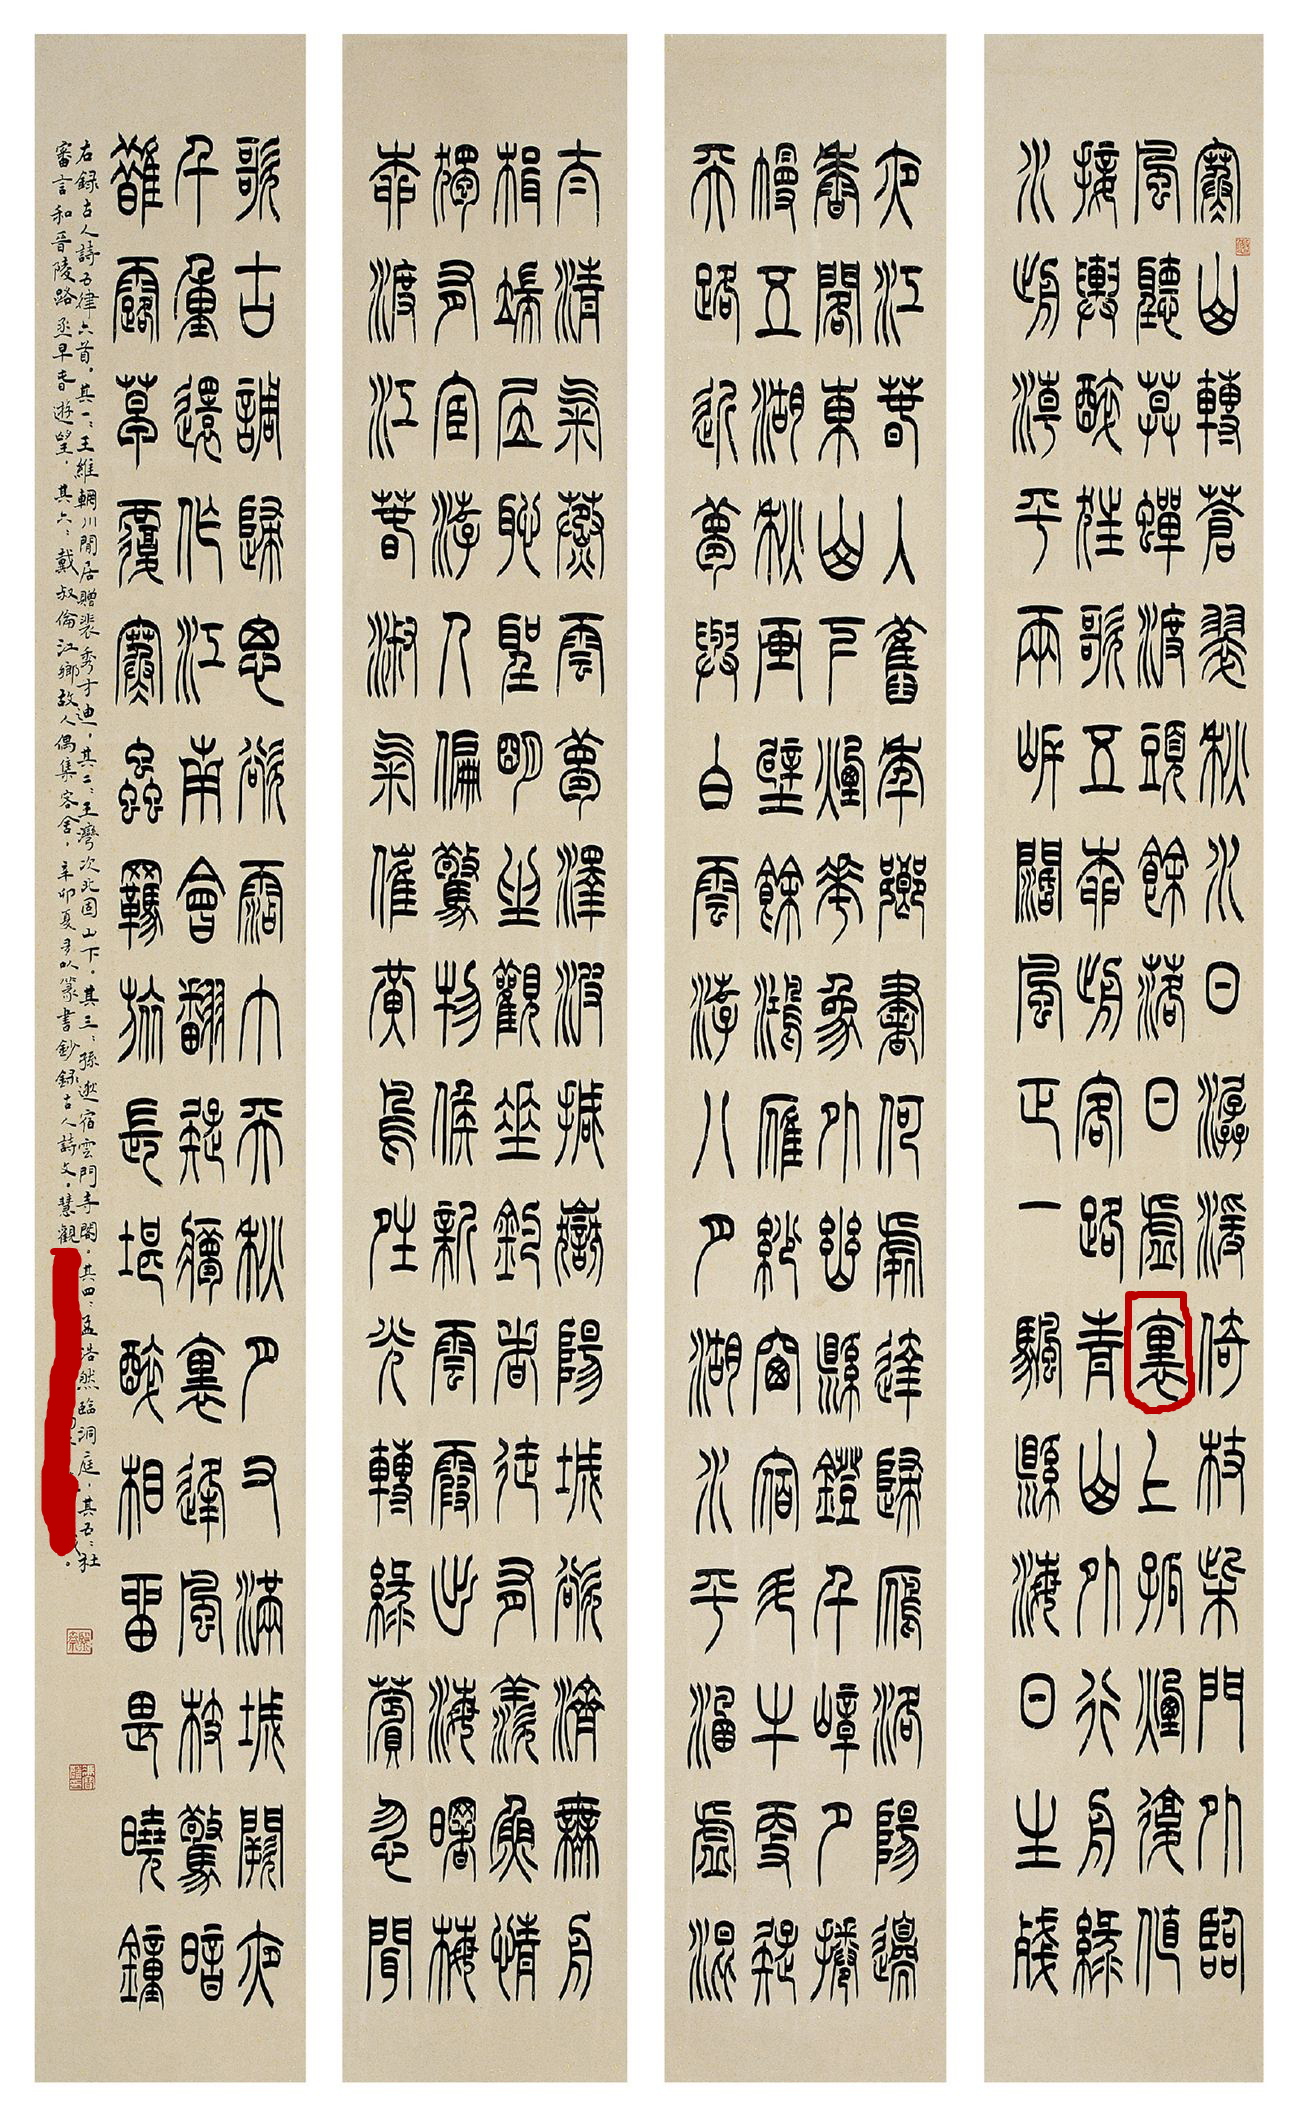 寒山轉蒼翠秋水日潺湲倚杖柴門外臨
風聽暮蟬渡頭餘落日虛裏上孤煙復值
接輿醉狂歌五柳前客路青山外行舟綠
水前潮平兩岸闊風正一颿縣海日生殘
夜江春入舊年鄉書何處達歸雁洛陽邊
香閣東山下煙花象外幽縣鐙千嶂夕捲
幔五湖秋畫壁餘鴻雁紗窗宿斗牛更疑
天路近夢與白雲游八月湖水平涵虛混
太清氣蒸雲夢澤波撼嶽陽城欲濟無舟
楫端居恥聖明坐觀垂釣者徒有羨魚情
獨有宦游人偏驚物候新雲霞出海曙梅
柳渡江春淑氣催黃鳥晴光轉綠蘋忽聞
歌古調歸思欲霑巾天秋月又滿城闕夜
千重還作江南會翻疑夢裏逢風枝驚暗
鵲露草覆寒蟲羈旅長堪醉相留畏曉鐘
右錄古人詩五律六首。其一：王維輞川閒居贈裴秀才迪，其二：王灣次北固山下。其三：孫逖宿雲門寺閣。其四：孟浩然臨洞庭，其五：杜
審言和晉陵路丞早春遊望，其六：戴叔倫江鄉故人偶集客舍，辛卯夏多以篆書鈔錄古人詩文，慧觀